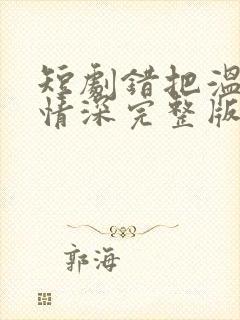 短劇錯把溫
情深完整版
郭海